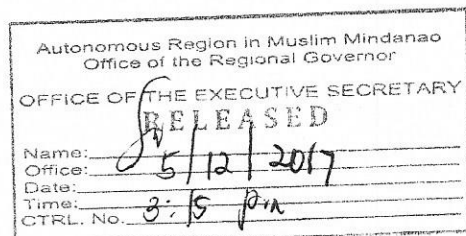 Autonomous Region in Muslim Mindanao
Office of the Regional Governor
OFFICE OF THE EXECUTIVE SECRETARY
RELEASED
Name:
Office:
Date: 5/12/2017
Time: 3:15 pm
CTRL. No.